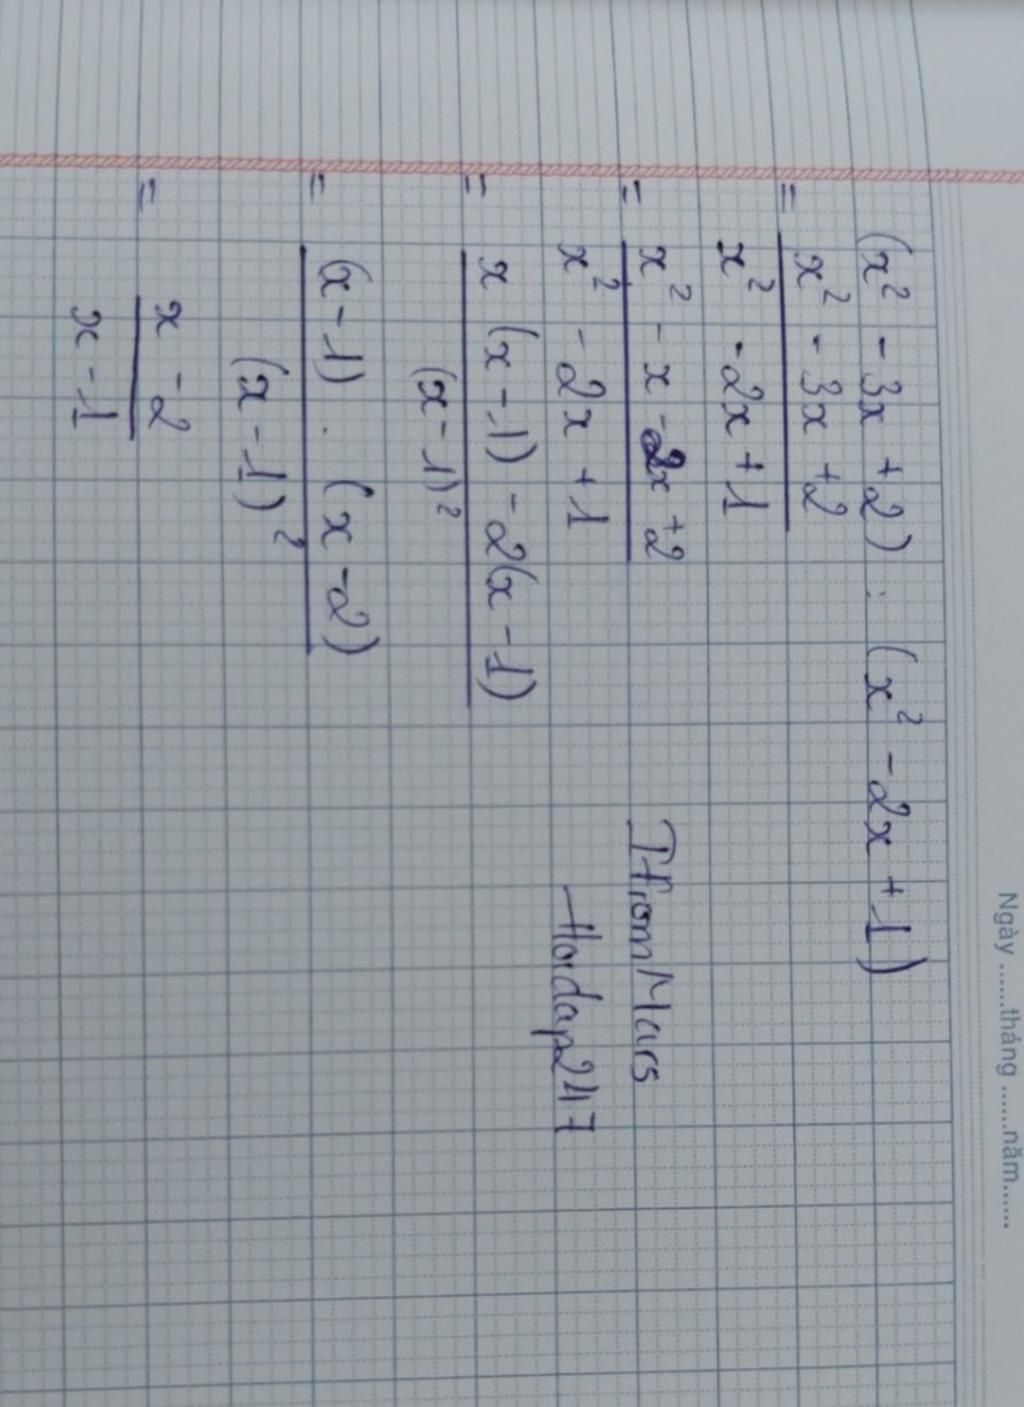 Ngày ......tháng ......năm......
(x² - 3x + 2) : (x² - 2x + 1)
= x² - 3x + 2
x² - 2x + 1
= x² - x - 2x + 2
x² - 2x + 1
= x (x - 1) - 2(x - 1)
(x - 1)²
= (x - 1) . (x - 2)
(x - 1)²
= x - 2
x - 1
IfromMars
Hoidap247